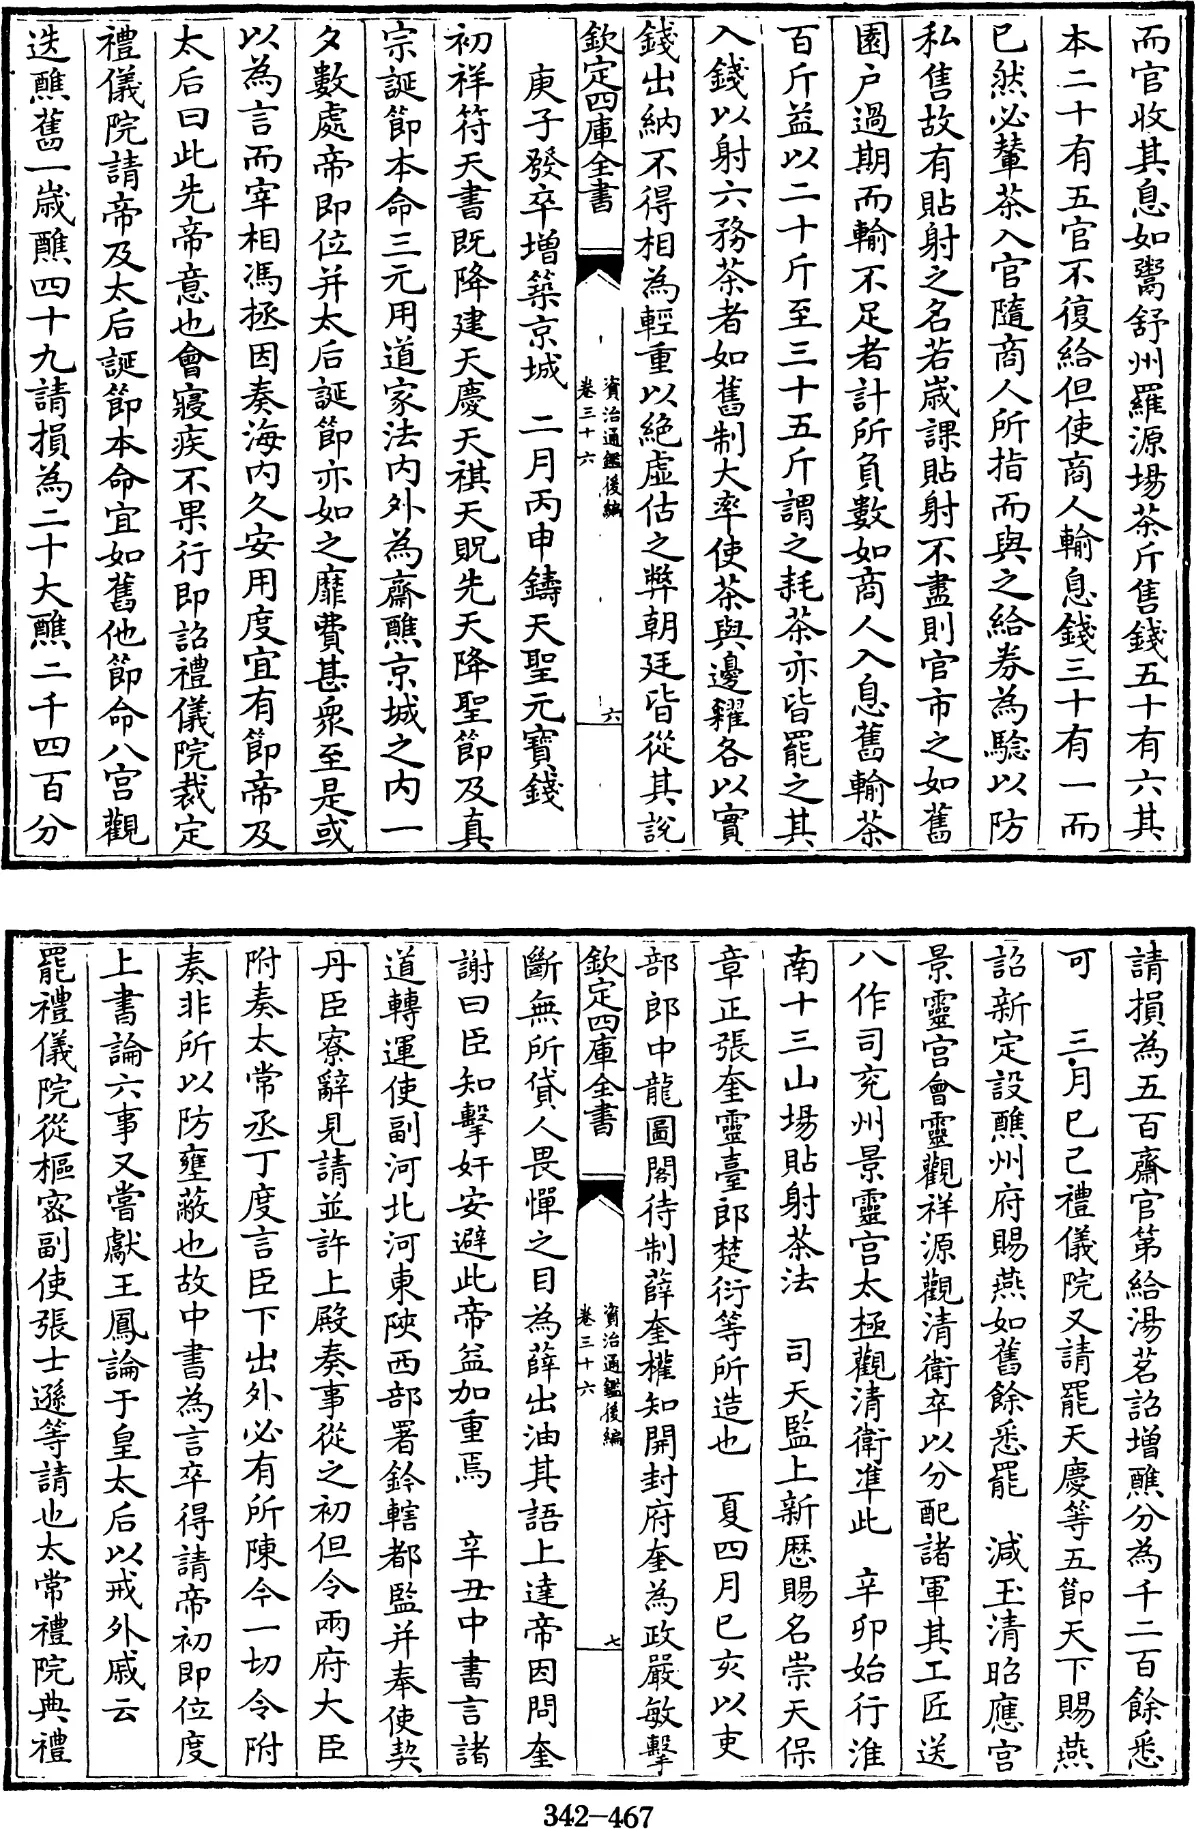 而官收其息如鬻舒州羅源場茶斤售錢五十有六其
本二十有五官不復給但使商人輸息錢三十有一而
已然必輦茶入官隨商人所指而與之給券為驗以防
私售故有貼射之名若歲課貼射不盡則官市之如舊
園户過期而輸不足者計所負數如商人入息舊輸茶
百斤益以二十斤至三十五斤謂之耗茶亦皆罷之其
入錢以射六務茶者如舊制大率使茶與邊糴各以實
錢出納不得相為輕重以絶虛估之弊朝廷皆從其說
欽定四庫全書
資治通鑑後編
卷三十六
六
庚子發卒增築京城 二月丙申鑄天聖元寶錢
初祥符天書既降建天慶天祺天貺先天降聖節及真
宗誕節本命三元用道家法内外為齋醮京城之内一
夕數處帝即位并太后誕節亦如之靡費甚衆至是或
以為言而宰相馮拯因奏海内久安用度宜有節帝及
太后曰此先帝意也會寢疾不果行即詔禮儀院裁定
禮儀院請帝及太后誕節本命宜如舊他節命八宫觀
迭醮舊一歲醮四十九請損為二十大醮二千四百分
請損為五百齋官第給湯茗詔增醮分為千二百餘悉
可 三月己己禮儀院又請罷天慶等五節天下賜燕
詔新定設醮州府賜燕如舊餘悉罷 減玉清昭應宫
景靈宫會靈觀祥源觀清衛卒以分配諸軍其工匠送
八作司兖州景靈宫太極觀清衛準此 辛卯始行淮
南十三山場貼射茶法 司天監上新厯賜名崇天保
章正張奎靈臺郎楚衍等所造也 夏四月己亥以吏
部郎中龍圖閣待制薛奎權知開封府奎為政嚴敏擊
欽定四庫全書
資治通鑑後編
卷三十六
七
斷無所貸人畏憚之目為薛出油其語上達帝因問奎
謝曰臣知擊奸安避此帝益加重焉 辛丑中書言諸
道轉運使副河北河東陜西部署鈐轄都監并奉使契
丹臣寮辭見請並許上殿奏事從之初但令兩府大臣
附奏太常丞丁度言臣下出外必有所陳今一切令附
奏非所以防壅蔽也故中書為言卒得請帝初即位度
上書論六事又嘗獻王鳳論于皇太后以戒外戚云
罷禮儀院從樞密副使張士遜等請也太常禮院典禮
342-467